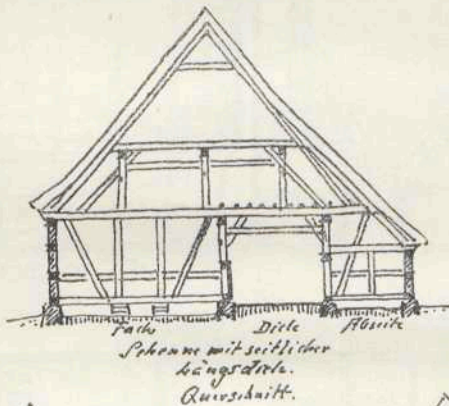 Fach Diele Abseite
Scheune mit seitlicher
Längsdiele.
Querschnitt.